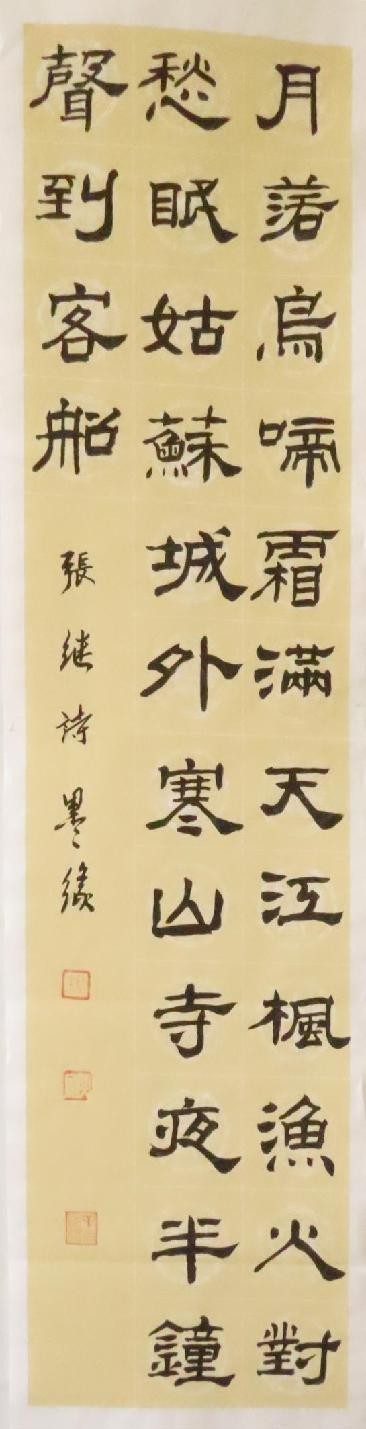 月落烏啼霜滿天江楓漁火對
愁眠姑蘇城外寒山寺夜半鐘
聲到客船
張继詩墨缘